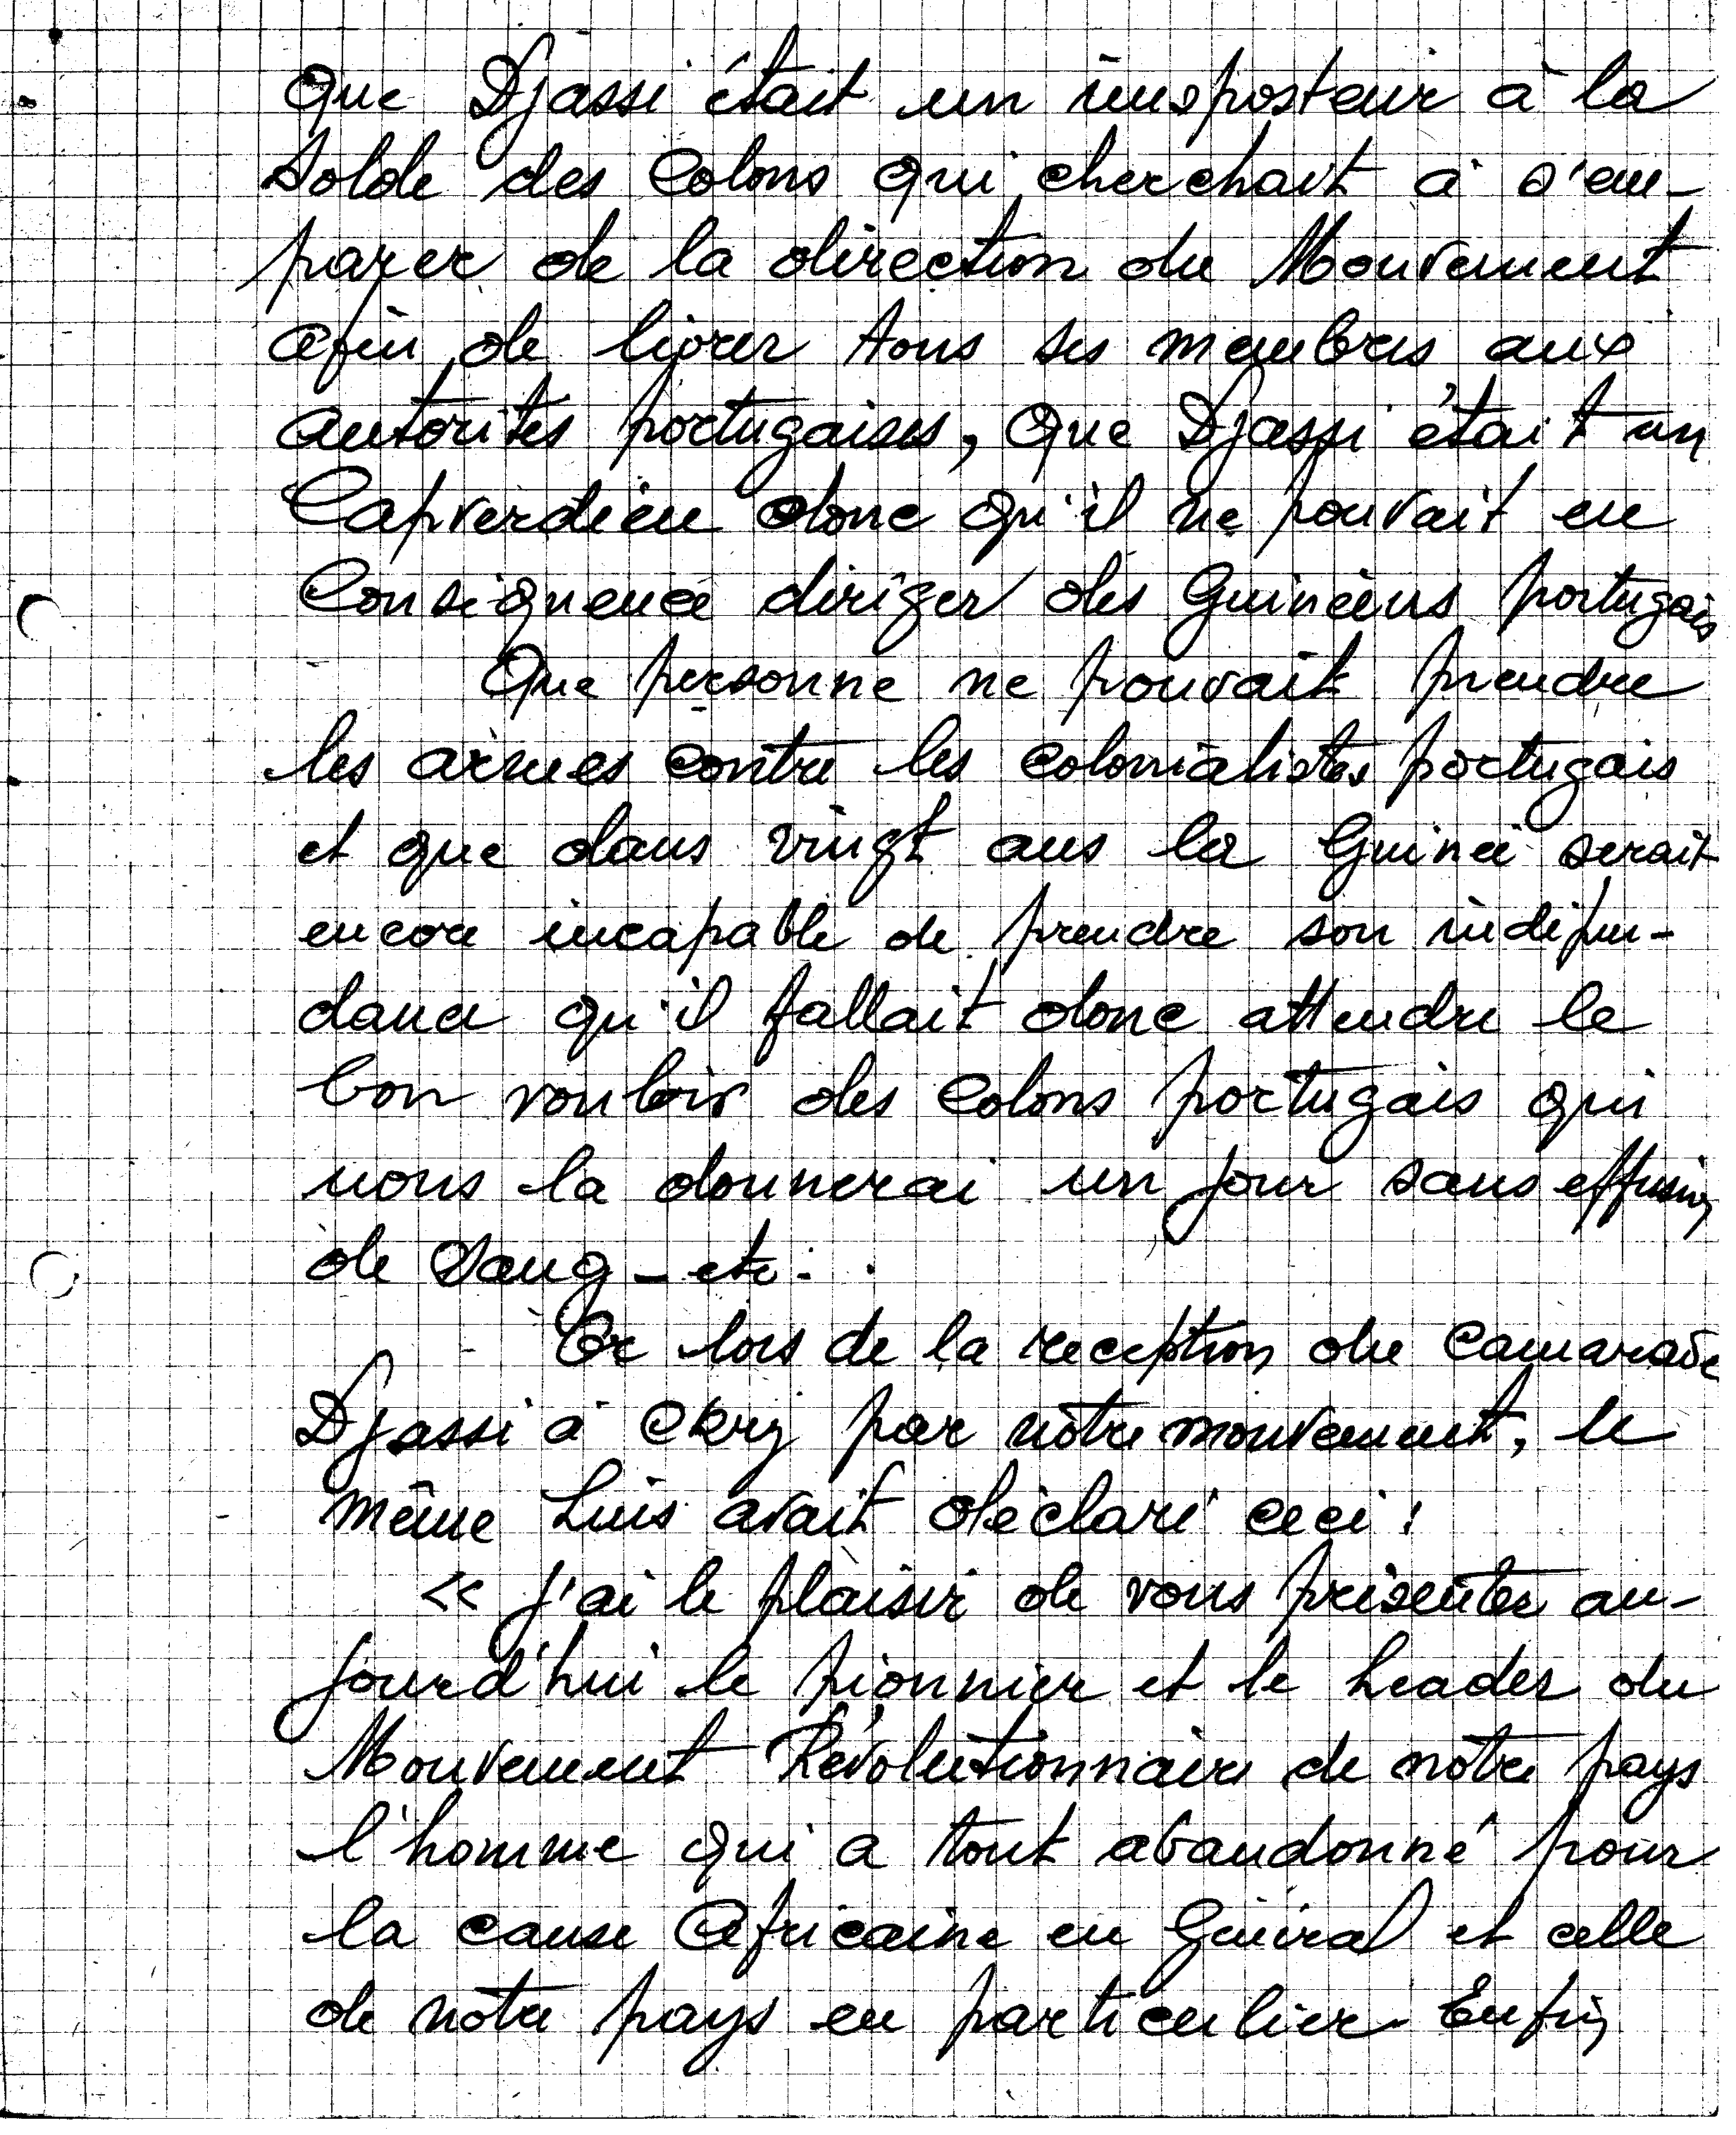 que Djassi était un imsposteur à la
solde des Colons qui cherchait à s'em-
parer de la direction du Mouvement
afin de livrer tous ses membres aux
autorités portugaises, que Djassi était un
Capverdien donc qu'il ne pouvait en
Conséquence diriger des Guinéens portugais
Que personne ne pouvait prendre
les armes contre les colonialistes portugais
et que dans vingt ans la Guinée serait
encore incapable de prendre son indépen-
dance qu'il fallait donc attendre le
bon vouloir des Colons portugais qui
nous la donnerai un jour sans effusion
de Sang - etc..
Or lors de la reception du Camarade
Djassi à Ckry par nôtre mouvement, le
même Luis avait déclaré ceci :
<< J'ai le plaisir de vous présenter au-
jourd'hui le pionnier et le Leader du
Mouvement Révolutionnaire de nôtre pays
l'homme qui a tout abandonné pour
la cause Africaine en Général et celle
de nôtre pays en particulier. Enfin